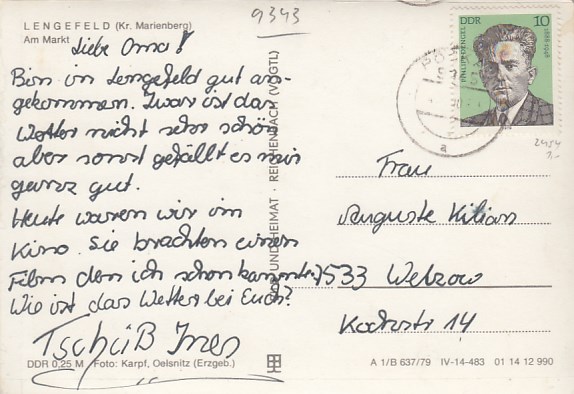 LENGEFELD (Kr. Marienberg)
Am Markt
9343
Liebe Oma!
Bin in Lengefeld gut an-
gekommen. Zwar ist das
Wetter nicht sehr schön
aber sonst gefällt es mir
ganz gut.
Heute waren wir im
Kino. Sie brachten einen
Film den ich schon kannte.
Wie ist das Wetter bei Euch?
Tschüß Ines
DDR 0,25 M Foto: Karpf, Oelsnitz (Erzgeb.)
BILD UND HEIMAT · REICHENBACH (VOGTL)
DDR 10
2454
1,-
a
Frau
Auguste Kilian
7533 Welzow
Kochstr 14
A 1/B 637/79 IV-14-483 01 14 12 990